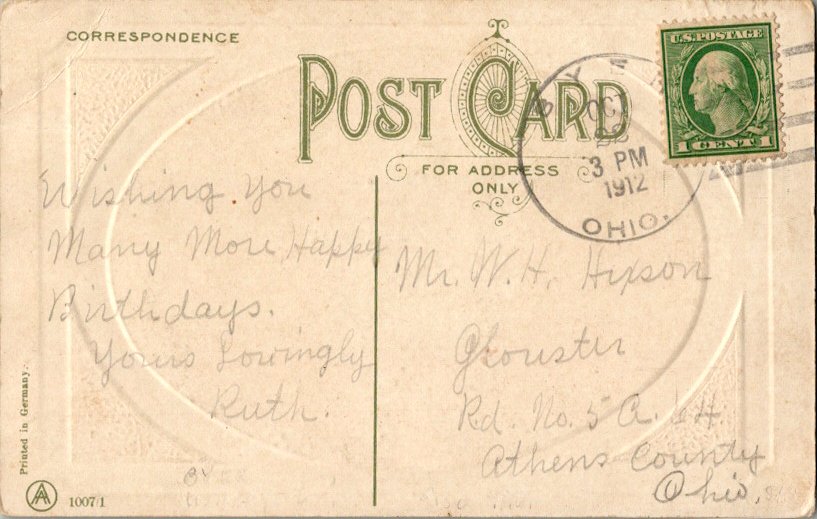 CORRESPONDENCE
POST CARD
FOR ADDRESS
ONLY
U.S. POSTAGE
1 CENT 1
OCT
22
3 PM
1912
OHIO.
Wishing You
Many More Happy
Birthdays.
Yours Lovingly
Ruth.
Mr. W. H. Hixson
Glouster
Rd. No. 5
Athens County
Ohio,
Printed in Germany.
1007/1
BYER